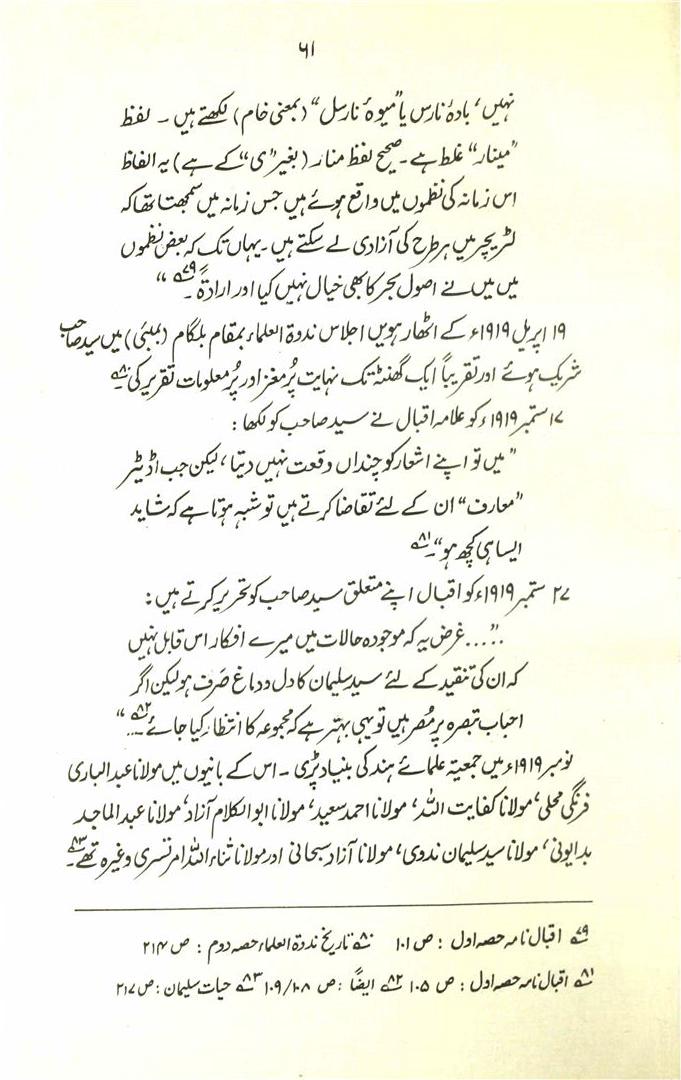 ۶۱
نہیں، بادۂ نارس یا "میوۂ نارسل" (بمعنی خام) لکھتے ہیں ۔ لفظ
"مینار" غلط ہے ۔ صحیح لفظ منار (بغیر "ی" کے ہے) یہ الفاظ
اس زمانہ کی نظموں میں واقع ہوئے ہیں جس زمانہ میں سمجھتا تھا کہ
لٹریچر میں ہر طرح کی آزادی لے سکتے ہیں ۔ یہاں تک کہ بعض نظموں
میں میں نے اصول بحر کا بھی خیال نہیں کیا اور ارادۃً ۔۷۹ "
۱۹ اپریل ۱۹۱۹ء کے اٹھارہویں اجلاس ندوۃ العلماء بمقام بلگام (بمبئی) میں سید صاحب
شریک ہوئے اور تقریباً ایک گھنٹہ تک نہایت پُر مغز اور پُر معلومات تقریر کی ۔۸۰
۱۷ ستمبر ۱۹۱۹ء کو علامہ اقبال نے سید صاحب کو لکھا :
"میں تو اپنے اشعار کو چنداں وقعت نہیں دیتا، لیکن جب اڈیٹر
"معارف" ان کے لئے تقاضا کرتے ہیں تو شبہ ہوتا ہے کہ شاید
ایسا ہی کچھ ہو"۔۸۱
۲۷ ستمبر ۱۹۱۹ء کو اقبال اپنے متعلق سید صاحب کو تحریر کرتے ہیں :
"....غرض یہ کہ موجودہ حالات میں میرے افکار اس قابل نہیں
کہ ان کی تنقید کے لئے سید سلیمان کا دل و دماغ صَرف ہو لیکن اگر
احباب تبصرہ پر مُصر ہیں تو یہی بہتر ہے کہ مجموعہ کا انتظار کیا جائے ۔۸۲.. "
نومبر ۱۹۱۹ء میں جمعیۃ علمائے ہند کی بنیاد پڑی ۔ اس کے بانیوں میں مولانا عبدالباری
فرنگی محلی، مولانا کفایت اللہ، مولانا احمد سعید، مولانا ابوالکلام آزاد، مولانا عبدالماجد
بدایونی، مولانا سید سلیمان ندوی، مولانا آزاد سبحانی اور مولانا ثناء اللہ امرتسری وغیرہ تھے ۔۸۳
۷۹ اقبال نامہ حصہ اول : ص ۱۰۱ ۸۰ تاریخ ندوۃ العلماء حصہ دوم : ص ۲۱۴
۸۱ اقبال نامہ حصہ اول : ص ۱۰۵ ۸۲ ایضاً : ص ۱۰۹/۱۰۸ ۸۳ حیات سلیمان : ص ۲۱۷